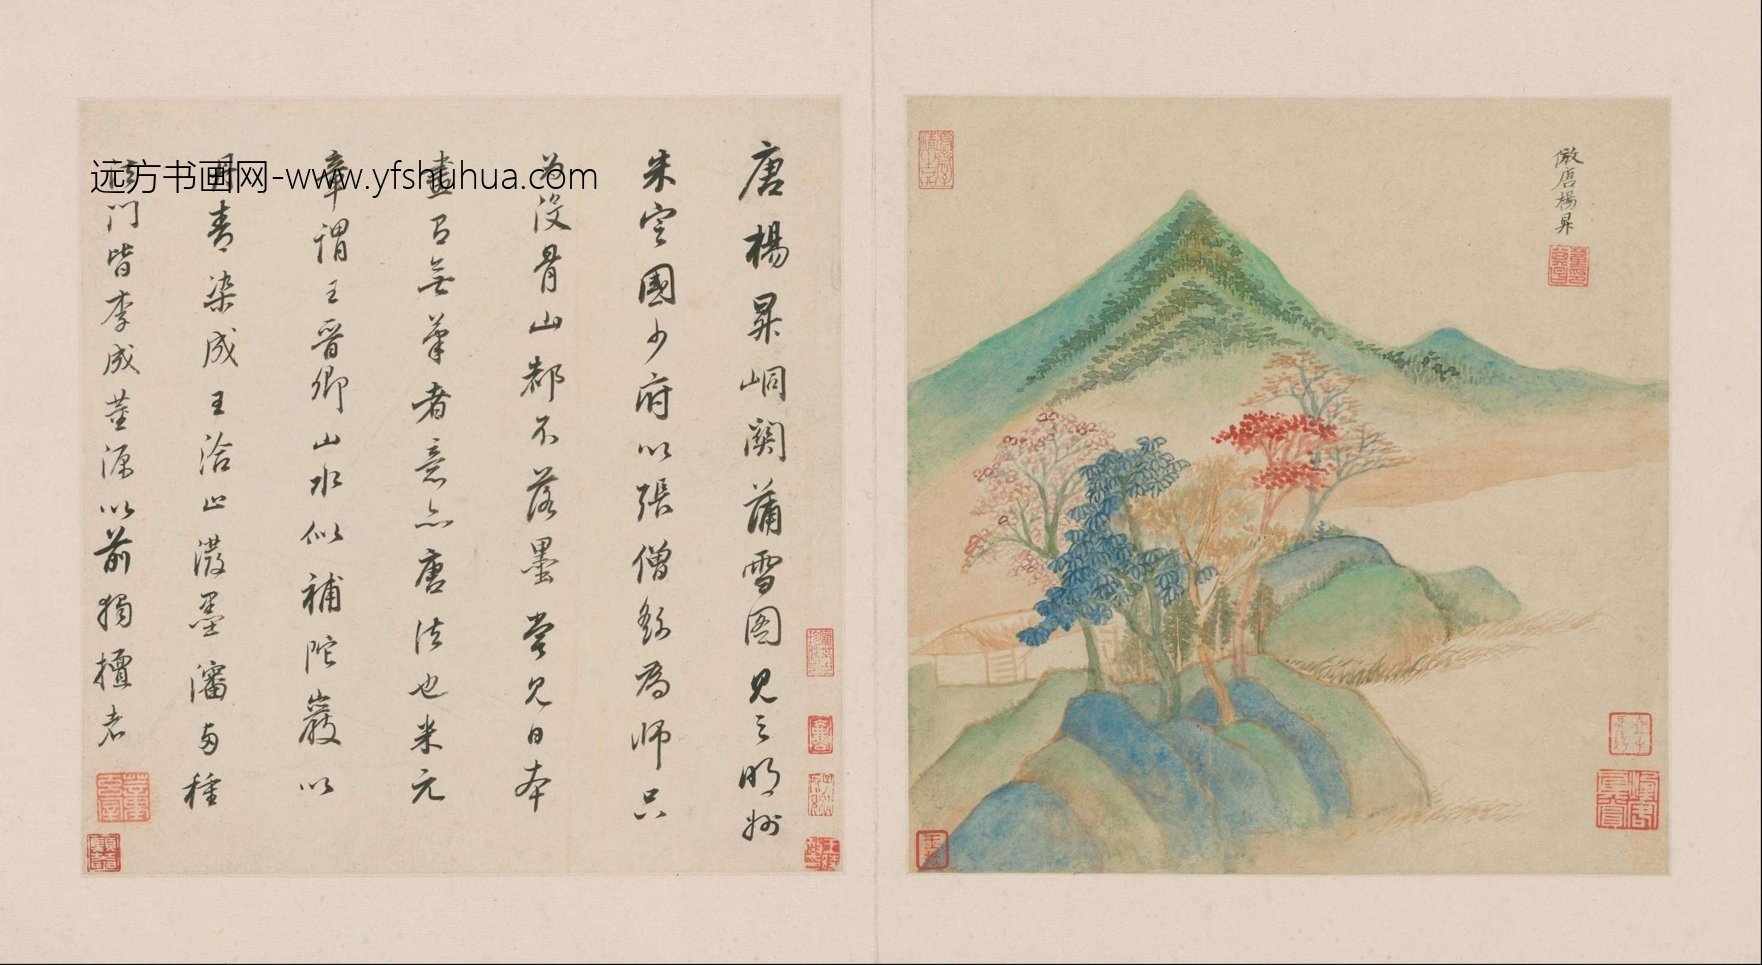 倣唐楊昇
唐楊昇峒關蒲雪圖見之明州
朱定國少府以張僧繇為師只
為沒骨山都不落墨嘗見日本
畫有無筆者意亦唐法也米元
章謂王晉卿山水似補陀巖以
用青染成王洽止潑墨瀋兩種
法門皆李成董源以前獨擅者
远方书画网-www.yfshuhua.com